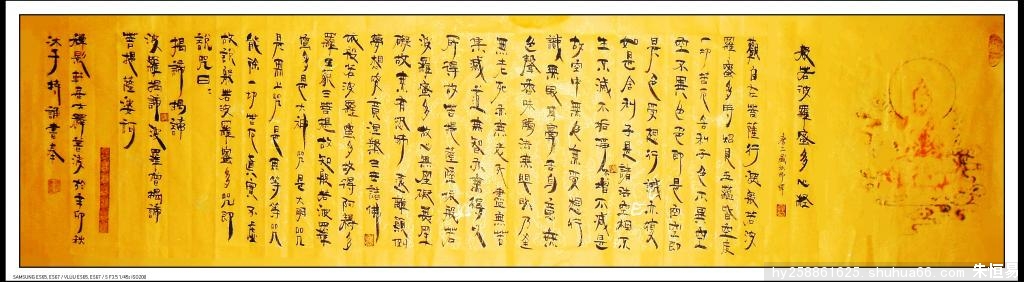 般若波羅蜜多心經
唐三藏法師譯
觀自在菩薩行深般若波
羅蜜多時照見五蘊皆空度
一切苦厄舍利子色不異空
空不異色色即是空空即
是色受想行識亦復
如是舍利子是諸法空相不
生不滅不垢不淨不增不減是
故空中無色無受想行
識無眼耳鼻舌身意無
色聲香味觸法無眼界乃至
無老死亦無老死盡無苦
集滅道無智亦無得以
所得故菩提薩埵依般若
波羅蜜多故心無罣礙無罣
礙故無有恐怖遠離顛倒
夢想究竟涅槃三世諸佛
依般若波羅蜜多故得阿耨多
羅三藐三菩提故知般若波羅
蜜多是大神咒是大明咒
是無上咒是無等等咒
能除一切苦真實不虛
故說般若波羅蜜多咒即
說咒曰:
揭諦揭諦
波羅揭諦波羅僧揭諦
菩提薩婆訶
於辛卯秋
沐手持誦書奉
SAMSUNG ES65, ES67 / VLUU ES65, ES67 / S F3.5 1/45s ISO200
hy258861625 shuhua66.com 朱恒易